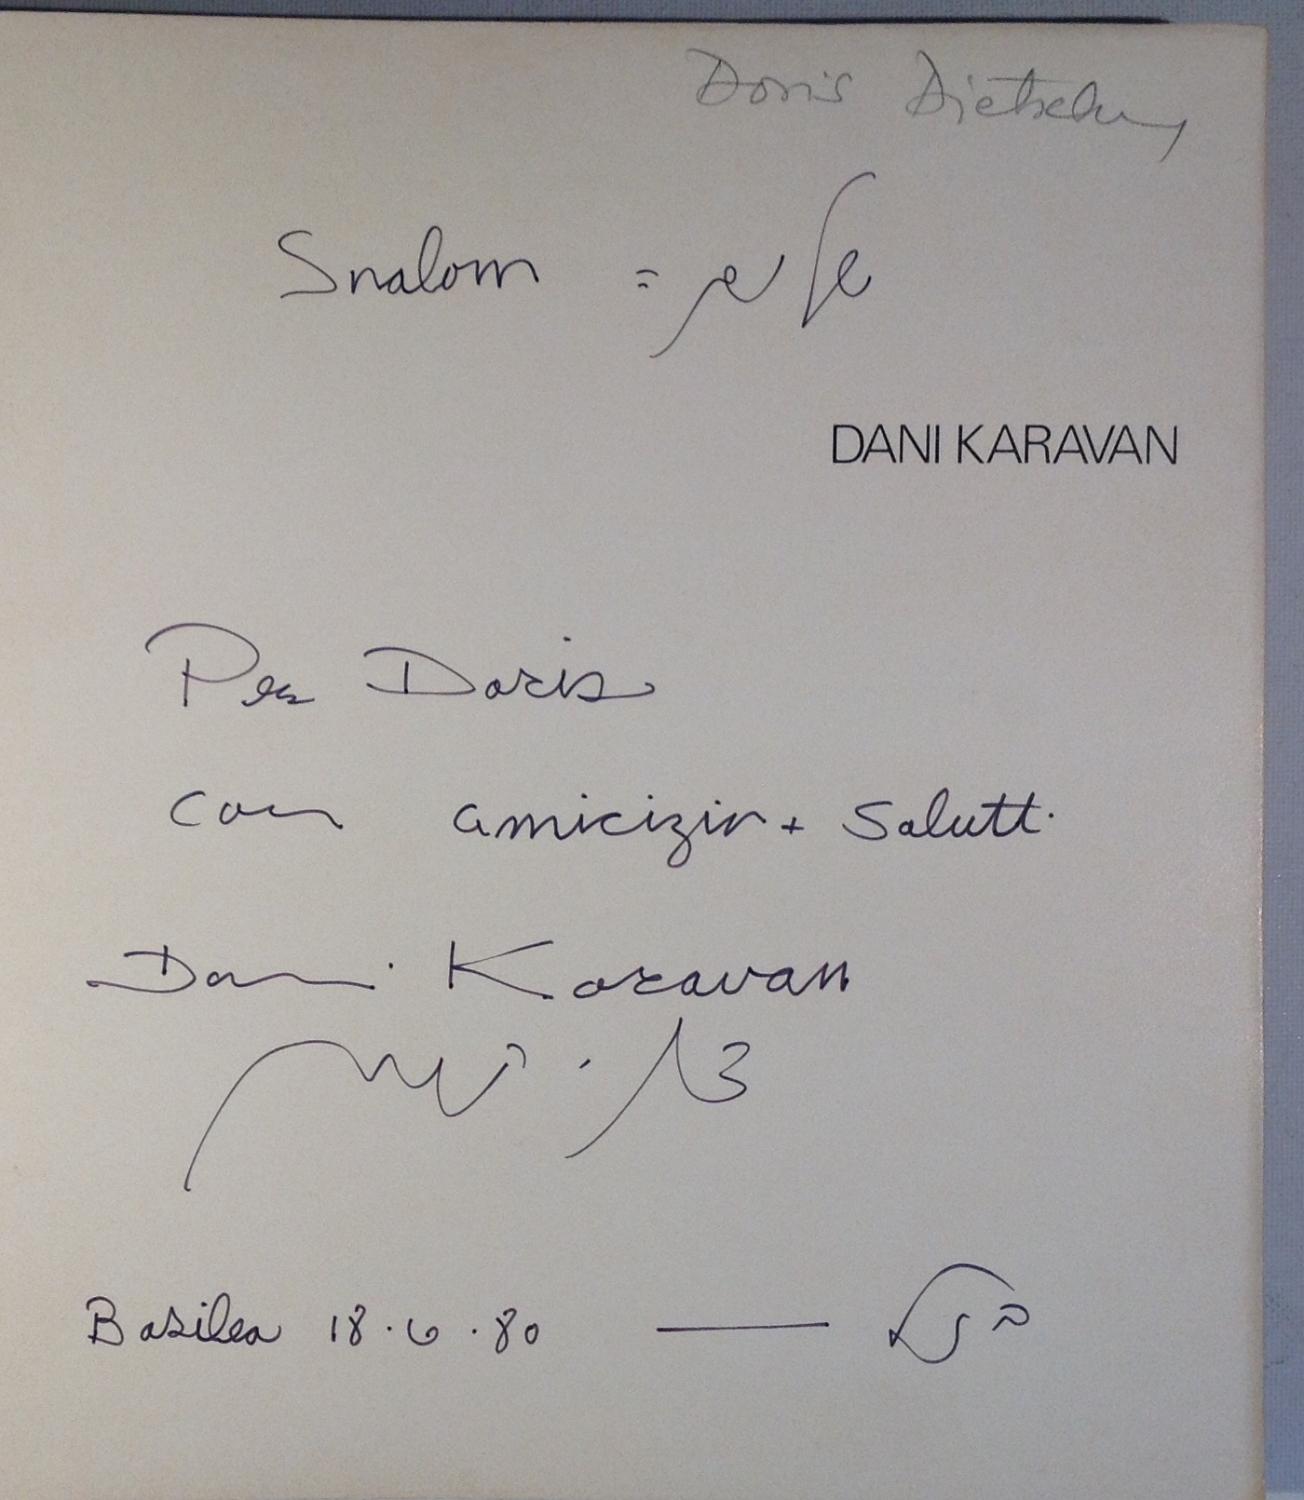 Doris
Shalom = שלום
DANI KARAVAN
Per Doris
con amicizia + Saluti
Dani Karavan
דני קרוון
Basilea 18.6.80 — בזל